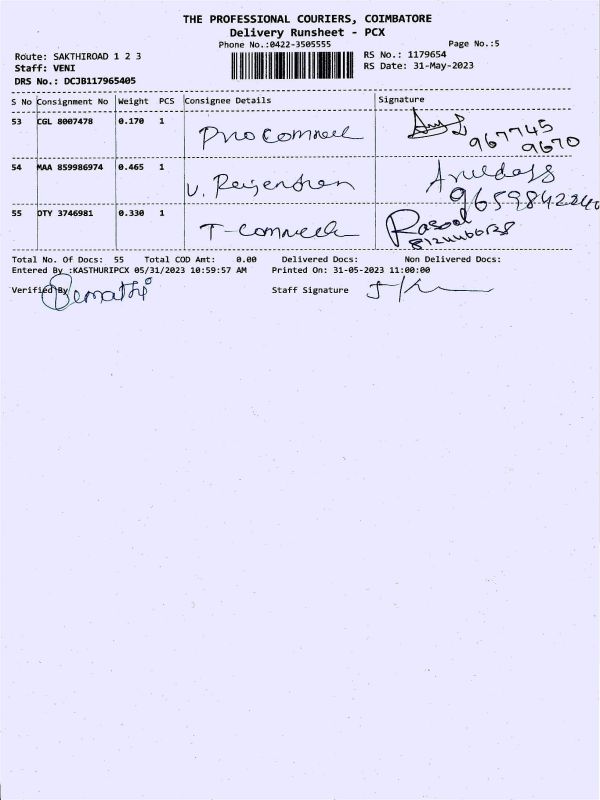 THE PROFESSIONAL COURIERS, COIMBATORE
Delivery Runsheet - PCX
Phone No.:0422-3505555
Page No.:5
Route: SAKTHIROAD 1 2 3
RS No.: 1179654
Staff: VENI
RS Date: 31-May-2023
DRS No.: DCJB117965405
S No Consignment No Weight PCS Consignee Details Signature
53 CGL 8007478 0.170 1
967745
9670
54 MAA 859986974 0.465 1 V.
55 DTY 3746981 0.330 1 Rasool
Total No. Of Docs: 55 Total COD Amt: 0.00 Delivered Docs: Non Delivered Docs:
Entered By :KASTHURIPCX 05/31/2023 10:59:57 AM Printed On: 31-05-2023 11:00:00
Verified By Staff Signature